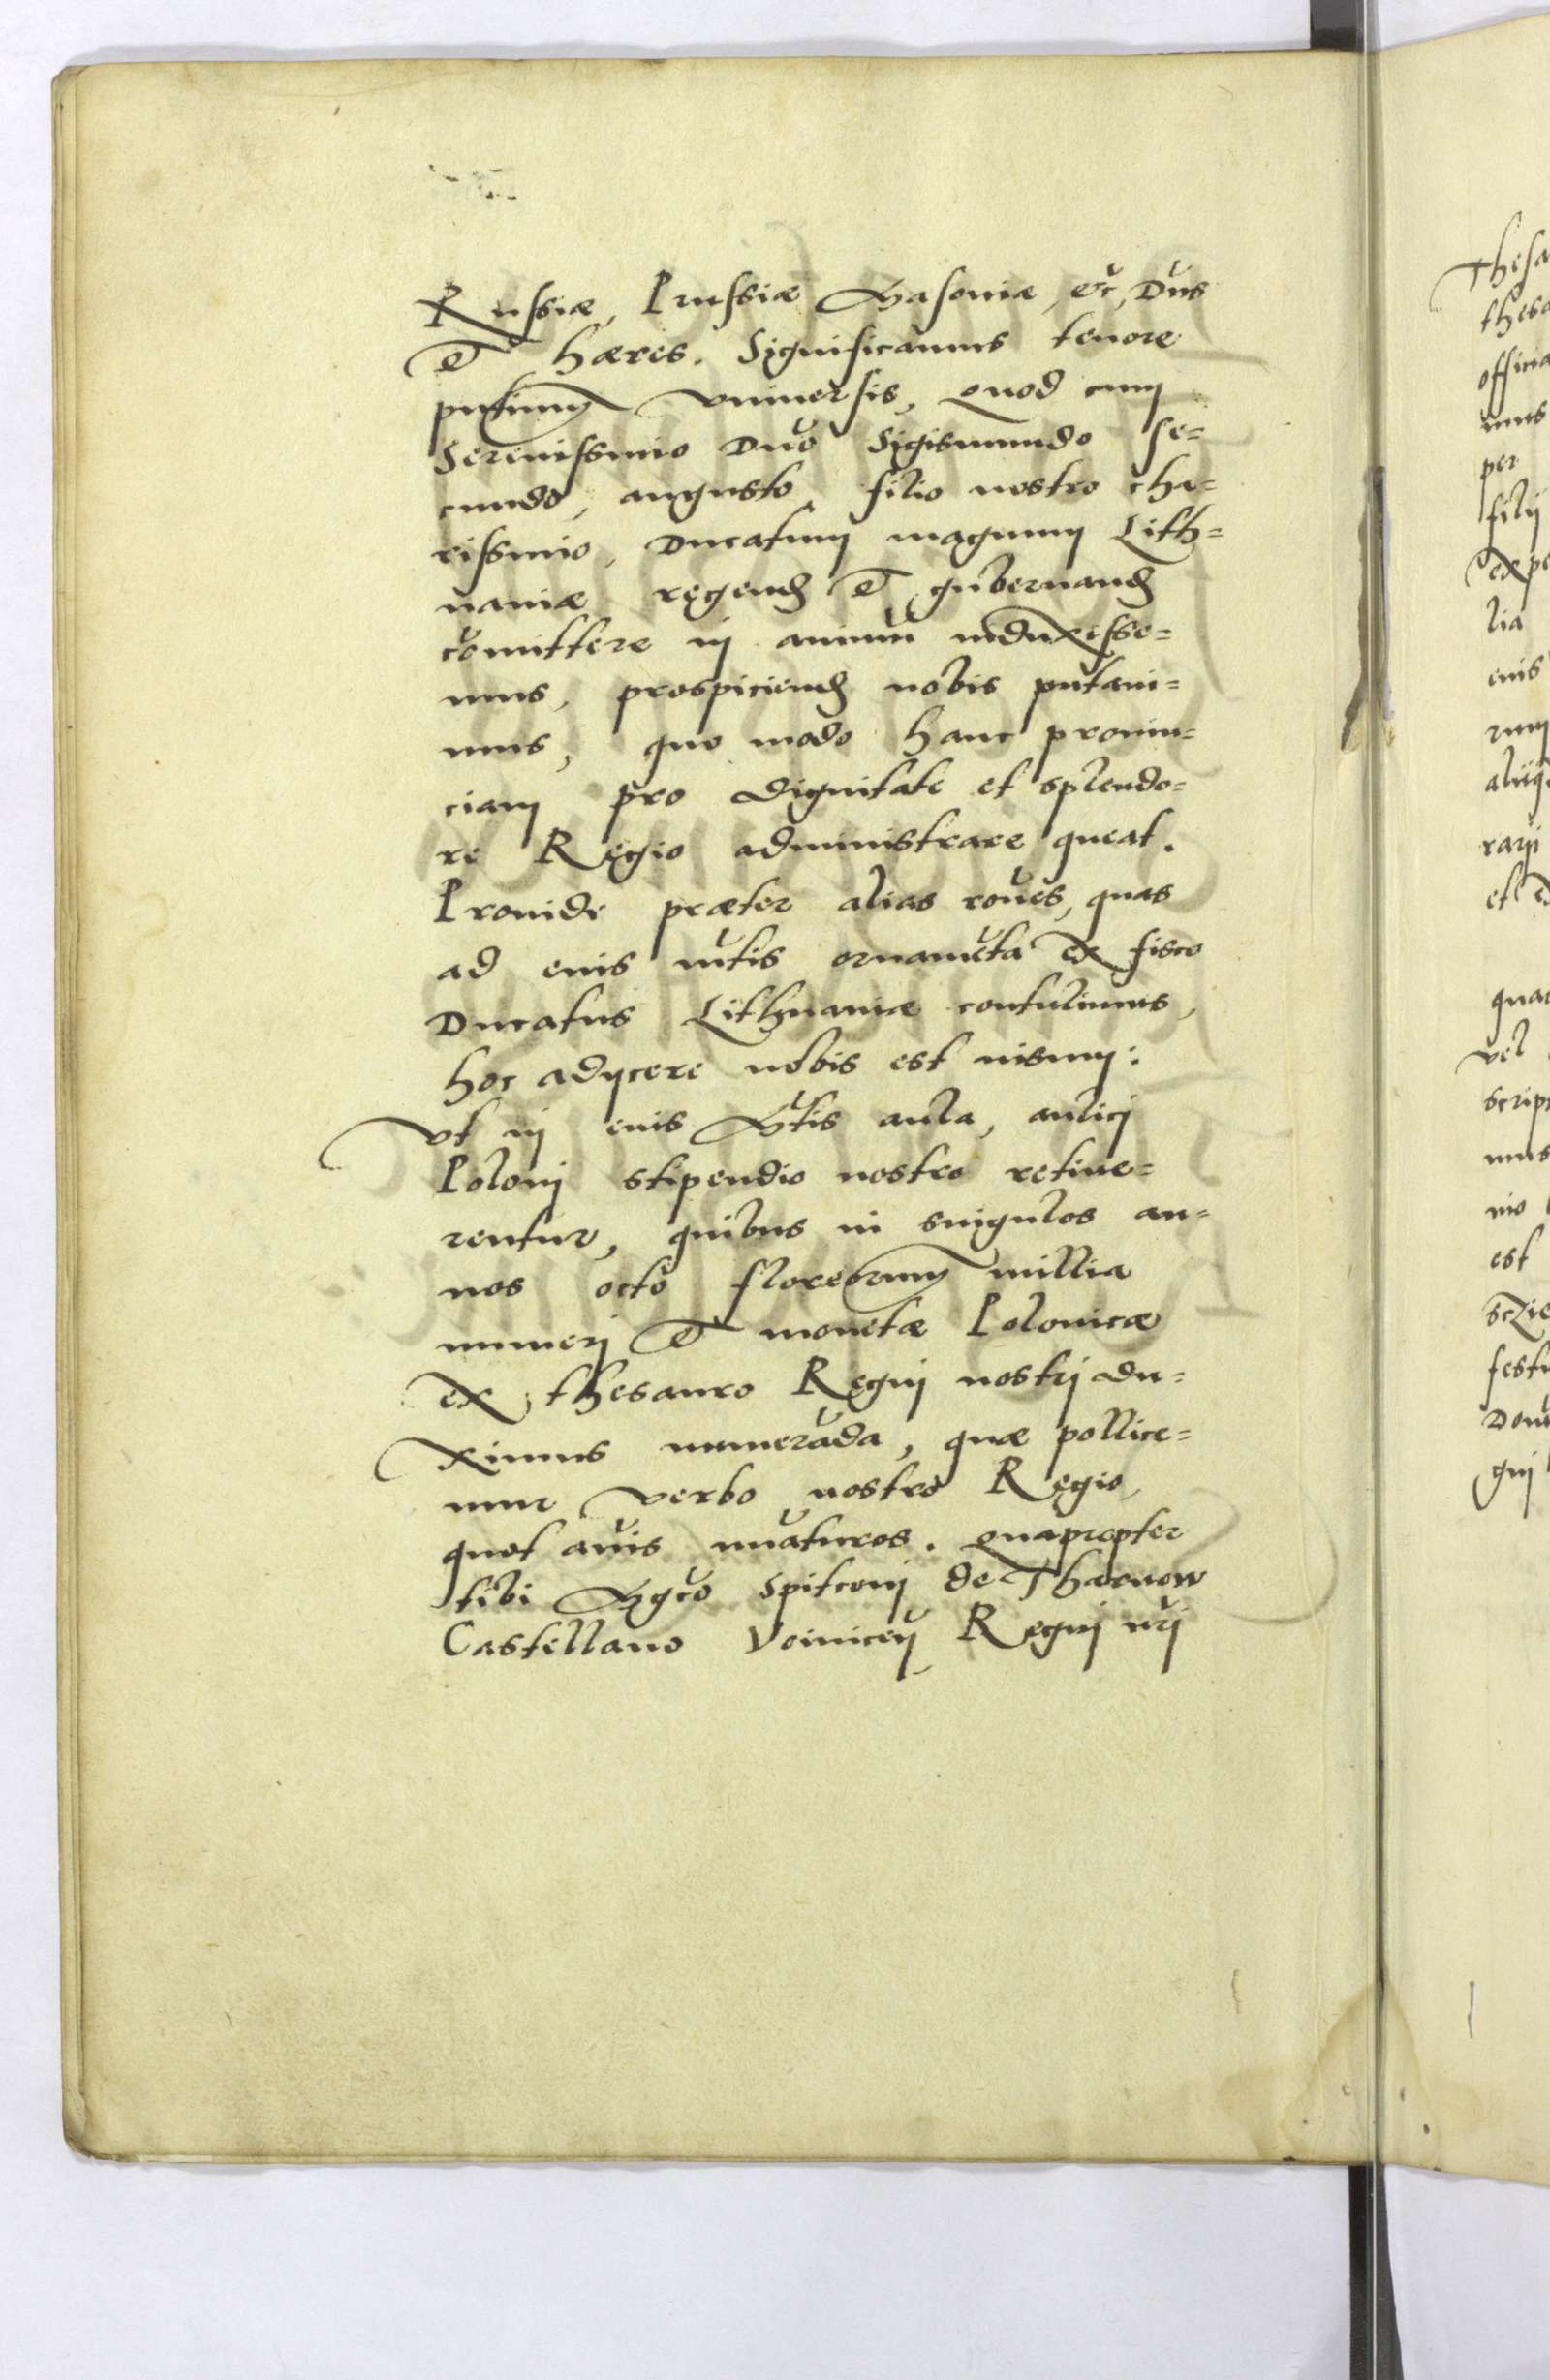 Russiæ, Prussiæ Masoniæ, etc, Dns
Et hæres. Significamus tenore
pntium vniuersis, quod cum
Serenissimo Dno Sigismundo se=
cundo, augusto, filio nostro cha=
rissimo, Ducatum magnum Lith=
uaniæ regend Et gubernand
comittere in animu induxisse=
mus, prospiciend nobis putaui=
mus, quo modo hanc prouin=
ciam pro dignitate et splendo=
re Regio administrare queat.
Prouide præter alias roues, quas
ad eius mtis ornameta ex fisco
Ducatus Lithuaniæ contulimus,
hoc adijcere nobis est uisum:
Vt in eius Mtis aula, aulicj
Polonj stipendio nostro retine=
rentur, quibus in singulos an=
nos octo florenorum millia
numerj Et monetæ Polonicæ
ex thesauro Regnj nostrj du=
ximus numerada, quæ pollice=
mur verbo nostro Regio,
quot anis nuaturos. quapropter
tibi Mgco Spitconj de Tharnow
Castellano Voinicen Regnj nrj
Thesa
thesa
officia
mus
per
filij
expe
lia
enis
rum
aliq
rarij
et
qua
vel
scrip
mus
nio
est
festu
Don
gnj